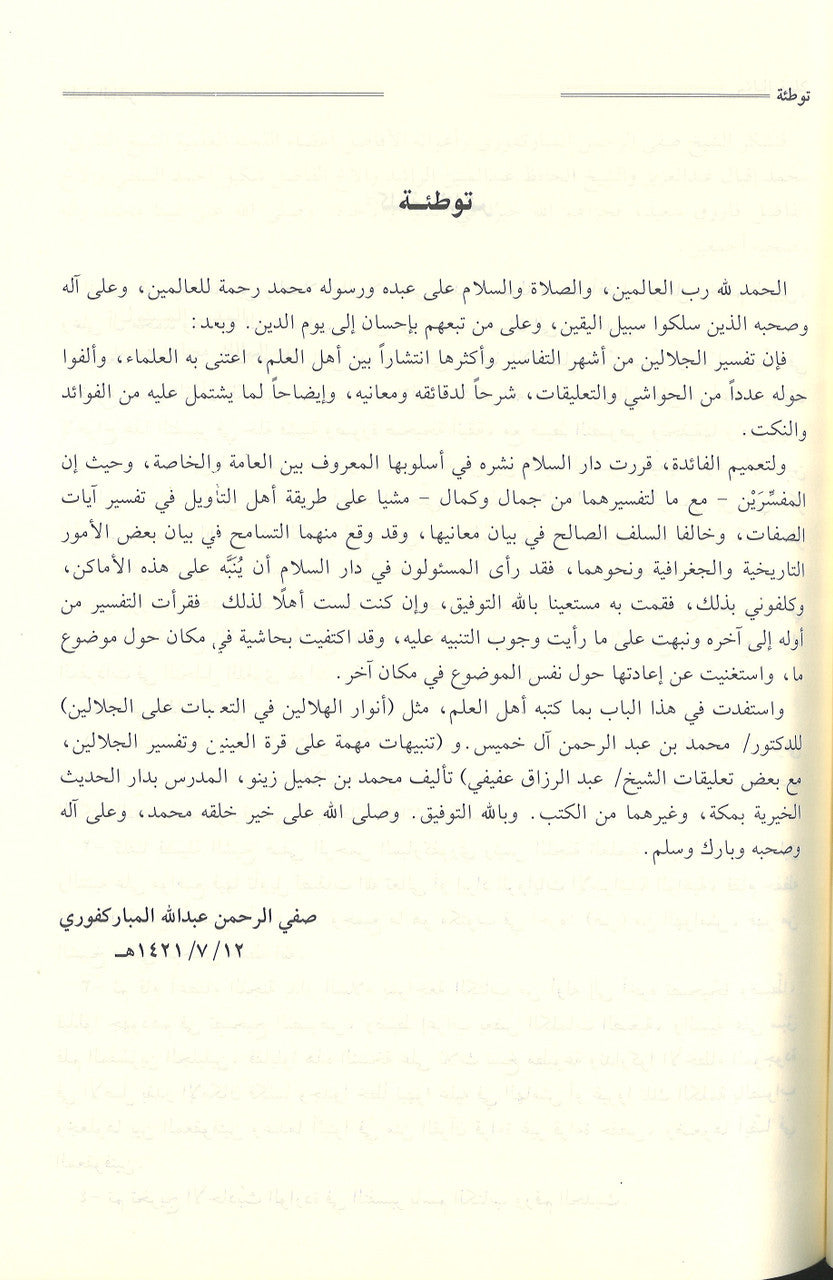 توطئة
توطئــة
الحمد لله رب العالمين، والصلاة والسلام على عبده ورسوله محمد رحمة للعالمين، وعلى آله
وصحبه الذين سلكوا سبيل اليقين، وعلى من تبعهم بإحسان إلى يوم الدين. وبعد:
فإن تفسير الجلالين من أشهر التفاسير وأكثرها انتشاراً بين أهل العلم، اعتنى به العلماء، وألفوا
حوله عدداً من الحواشي والتعليقات، شرحاً لدقائقه ومعانيه، وإيضاحاً لما يشتمل عليه من الفوائد
والنكت.
ولتعميم الفائدة، قررت دار السلام نشره في أسلوبها المعروف بين العامة والخاصة، وحيث إن
المفسِّرَيْن – مع ما لتفسيرهما من جمال وكمال – مشيا على طريقة أهل التأويل في تفسير آيات
الصفات، وخالفا السلف الصالح في بيان معانيها، وقد وقع منهما التسامح في بيان بعض الأمور
التاريخية والجغرافية ونحوهما، فقد رأى المسئولون في دار السلام أن يُنَبَّه على هذه الأماكن،
وكلفوني بذلك، فقمت به مستعينا بالله التوفيق، وإن كنت لست أهلًا لذلك فقرأت التفسير من
أوله إلى آخره ونبهت على ما رأيت وجوب التنبيه عليه، وقد اكتفيت بحاشية في مكان حول موضوع
ما، واستغنيت عن إعادتها حول نفس الموضوع في مكان آخر.
واستفدت في هذا الباب بما كتبه أهل العلم، مثل (أنوار الهلالين في التعقبات على الجلالين)
للدكتور/ محمد بن عبد الرحمن آل خميس.و (تنبيهات مهمة على قرة العينين وتفسير الجلالين،
مع بعض تعليقات الشيخ/ عبد الرزاق عفيفي) تأليف محمد بن جميل زينو، المدرس بدار الحديث
الخيرية بمكة، وغيرهما من الكتب. وبالله التوفيق. وصلى الله على خير خلقه محمد، وعلى آله
وصحبه وبارك وسلم.
صفي الرحمن عبدالله المباركفوري
١٤٢١/٧/١٢هـ